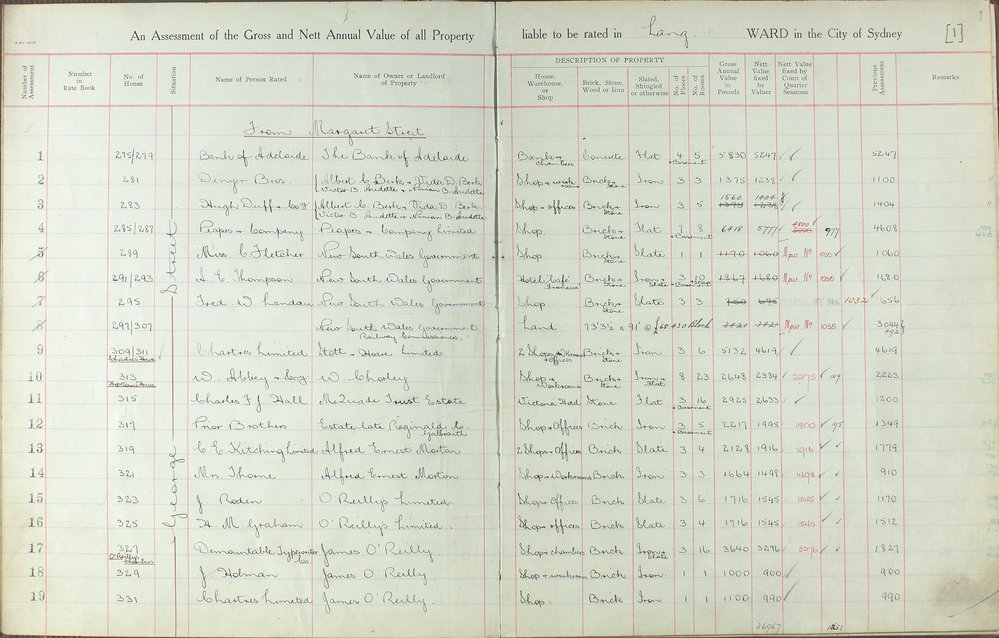 An Assessment of the Gross and Nett Annual Value of all Property liable to be rated in Lang WARD in the City of Sydney [1]
Number of Assessment
Number in Rate Book
No. of House
Situation
Name of Person Rated
Name of Owner or Landlord of Property
DESCRIPTION OF PROPERTY
House, Warehouse, or Shop
Brick, Stone, Wood or Iron
Slated, Shingled or otherwise
No. of Floors
No. of Rooms
Gross Annual Value in Pounds
Nett Value fixed by Valuer
Nett Value fixed by Court of Quarter Sessions
Previous Assessment
Remarks
From Margaret Street
George Street
1 275/279 Bank of Adelaide The Bank of Adelaide Bank + chambers Concrete Flat 4 + Basement 5 5830 5247 5247
2 281 Denyer Bros. Albert C. Berk + Vida D. Berk Victor B. Audette + Ninian B. Audette Shop + workrooms Brick + Stone Iron 3 3 1375 1238 1100
3 283 Hugh Duff + Coy Albert C. Berk + Vida D. Berk. Victor B. Audette + Ninian B. Audette Shop + offices Brick + Stone Iron 3 5 1560 1404 1404
4 285/287 Peapes + Company Peapes + Company Limited Shop. Brick + Stone Flat 7 + Basement 8 6418 5777 4800 977 4608
5 289 Miss C Fletcher New South Wales Government Shop Brick + Stone Slate 1 1 1170 1060 New No 1035 1060
6 291/293 A. E. Thompson New South Wales Government Hotel Café Brick + Stone Iron + Slate 3 10 1867 1680 New No 1035 1680
7 295 Fred W Landau New South Wales Government Shop Brick + Stone Slate 3 3 1032 656
8 297/307 New South Wales Government Railway Commissioners. Land 73'3½ x 91' @ £ Block 3421 New No 1035 3044
9 309/311 Chartres House Chartres Limited Stott House Limited 2 Shops + Offices Brick + Stone Iron 3 6 5132 4619 4619
10 313 W. Abbey + Coy W. Chorley Shop + Workrooms Brick + Stone Iron + Flat 8 23 2648 2384 2275 109 2223
11 315 Charles F J Hall McQuade Trust Estate Victoria Hotel Stone Flat 3 + Basement 16 2925 2633 1200
12 317 Prior Brothers Estate late Reginald C. Galbraith Shop + Offices Brick Iron 3 + Basement 5 2217 1995 1800 195 1349
13 319 C E Kitching Limited Alfred Ernest Morton 2 Shops + Offices Brick Slate 3 4 2128 1916 1916 1779
14 321 Mrs. Thorne Alfred Ernest Morton Shop + Workrooms Brick Iron 3 3 1664 1498 1498 910
15 323 J Roden O'Reillys Limited. Shop + Offices Brick Slate 3 6 1716 1545 1545 1170
16 325 H. M. Graham O'Reillys Limited. Shop + offices Brick Slate 3 4 1716 1545 1545 1512
17 327 O'Reillys Chambers Demountable Typewriter Co. James O'Reilly. Shop + chambers Brick Iron + Slate 3 16 3640 3276 3276 1827
18 329 J. Holman James O'Reilly Shop + workroom Brick Iron 1 1 1000 900 900
19 331 Chartres Limited James O'Reilly. Shop. Brick Iron 1 1 1100 990 990
36967